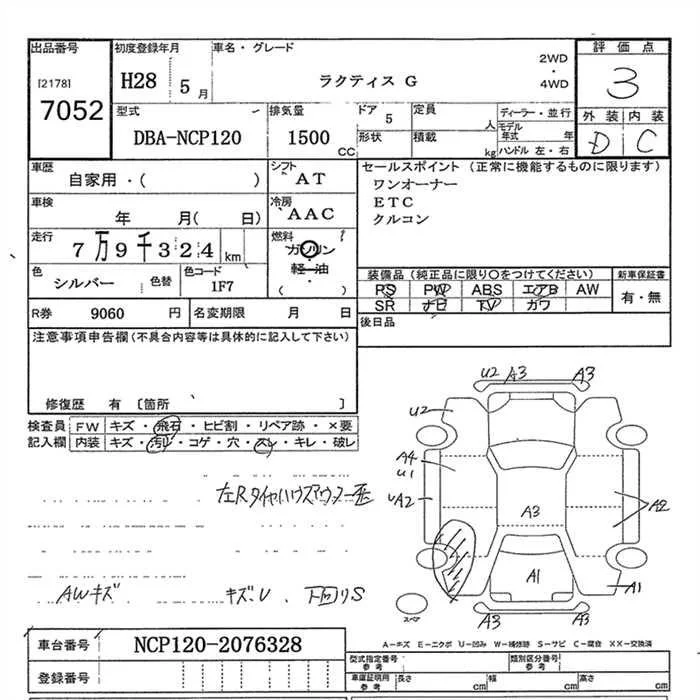 出品番号 初度登録年月 車名・グレード 評価点
[2178] H28 5月 ラクティス G 2WD・4WD 3
7052
型式 排気量 ドア 5 定員 人 ディーラー・並行 外装 内装
DBA-NCP120 1500 CC 形状 積載 kg モデル年式 年 ハンドル 左・右 D C
車歴 シフト セールスポイント (正常に機能するものに限ります)
自家用・( ) AT ワンオーナー
車検 冷房 ETC
年 月( 日) AAC クルコン
走行 7万9千324 km 燃料 ガソリン
軽油
( )
色 シルバー 色替 色コード 1F7
装備品 (純正品に限り○をつけてください) 新車保証書
PS PW ABS エアB AW 有・無
SR ナビ TV カワ
R券 9060 円 名変期限 月 日 後日品
注意事項申告欄 (不具合内容等は具体的に記入して下さい)
修復歴 有 〔箇所 〕
検査員 FW キズ・飛石・ヒビ割・リペア跡・×要
記入欄 内装 キズ・汚レ・コゲ・穴・スレ・キレ・破レ
左Rタイヤハウス
AWキズ キズ、U、下回りS
U2 A3 A3
U2
A4
U1
UA2 A3 A2
A1 A1
スペア A3 A3
A-キズ E-エクボ U-凹み W-補修跡 S-サビ C-腐食 XX-交換済
車台番号 NCP120-2076328
登録番号
型式指定番号 参考 類別区分番号 参考
車庫証明用 参考 長さ cm 幅 cm 高さ cm